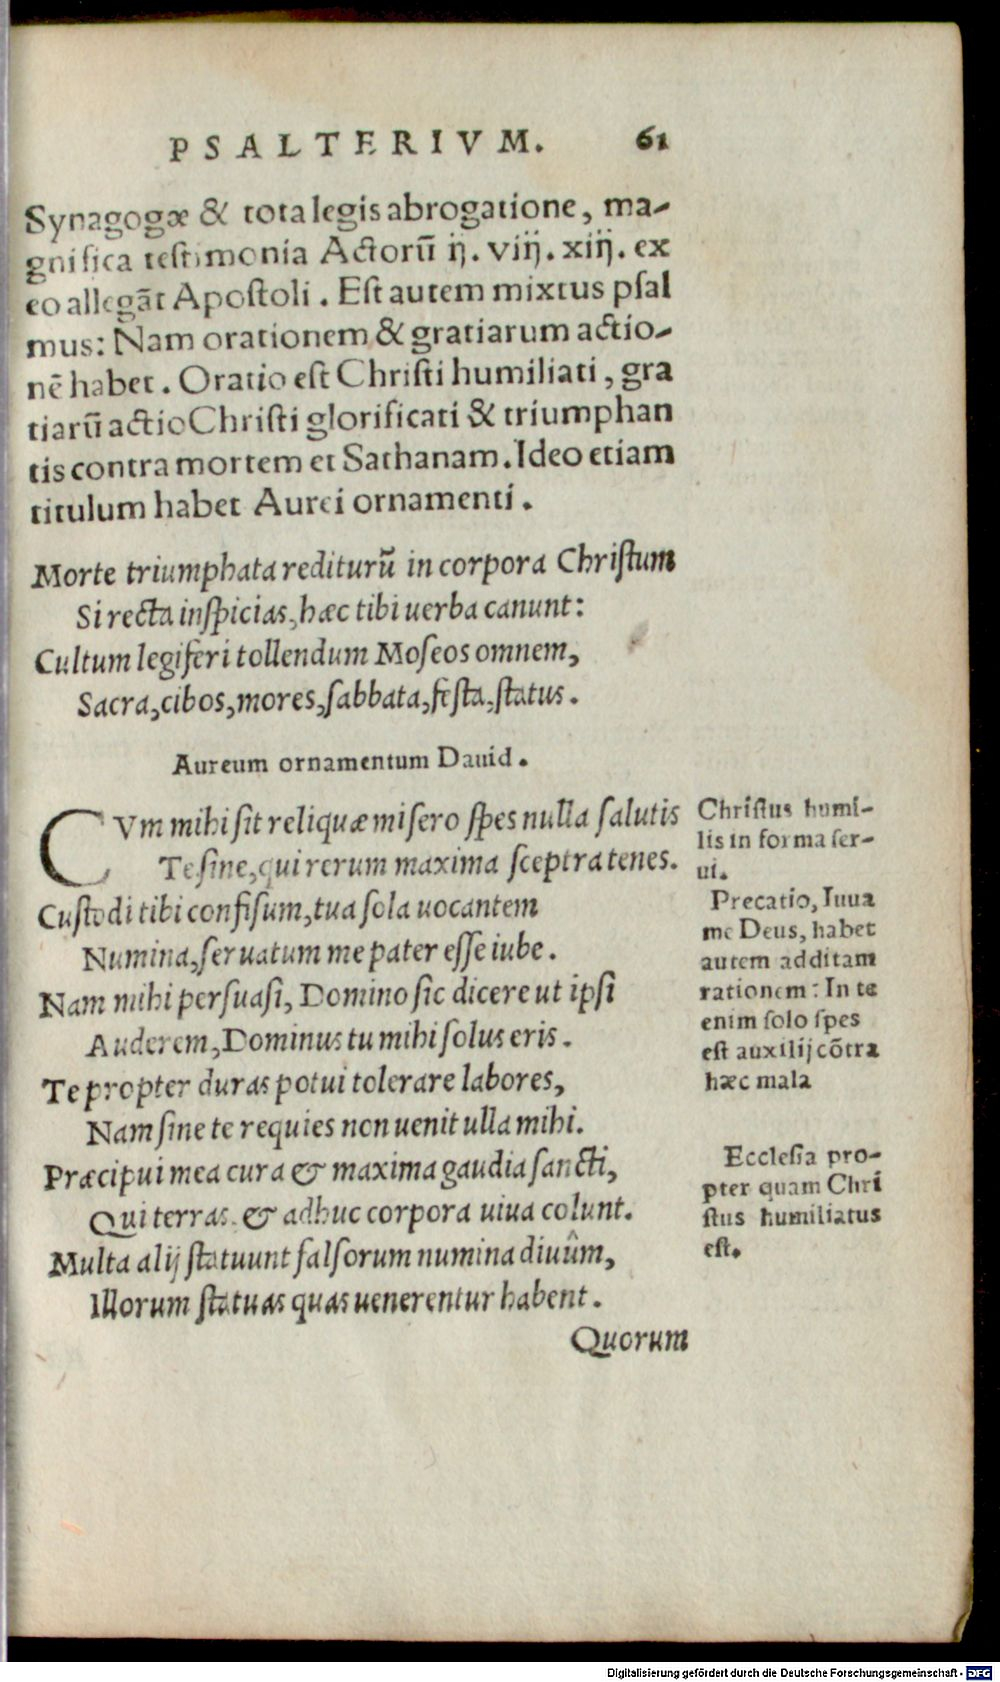 PSALTERIVM. 61
Synagogæ & tota legis abrogatione, ma-
gnifica testimonia Actorū ij. viij. xiij. ex
eo allegāt Apostoli. Est autem mixtus psal
mus: Nam orationem & gratiarum actio-
nē habet. Oratio est Christi humiliati, gra
tiarū actio Christi glorificati & triumphan
tis contra mortem et Sathanam. Ideo etiam
titulum habet Aurei ornamenti.
Morte triumphata rediturū in corpora Christum
Si recta inspicias, hæc tibi uerba canunt:
Cultum legiferi tollendum Moseos omnem,
Sacra, cibos, mores, sabbata, festa, status.
Aureum ornamentum Dauid.
CVm mihi sit reliquæ misero spes nulla salutis
Te sine, qui rerum maxima sceptra tenes.
Custodi tibi confisum, tua sola uocantem
Numina, seruatum me pater esse iube.
Nam mihi persuasi, Domino sic dicere ut ipsi
Auderem, Dominus tu mihi solus eris.
Te propter duras potui tolerare labores,
Nam sine te requies non uenit ulla mihi.
Præcipui mea cura & maxima gaudia sancti,
Qui terras & adhuc corpora uiua colunt.
Multa alij statuunt falsorum numina diuûm,
Illorum statuas quas uenerentur habent.
Quorum
Christus humi-
lis in forma ser-
ui.
Precatio, Iuua
me Deus, habet
autem additam
rationem: In te
enim solo spes
est auxilij cōtra
hæc mala
Ecclesia pro-
pter quam Chri
stus humiliatus
est.
Digitalisierung gefördert durch die Deutsche Forschungsgemeinschaft - DFG